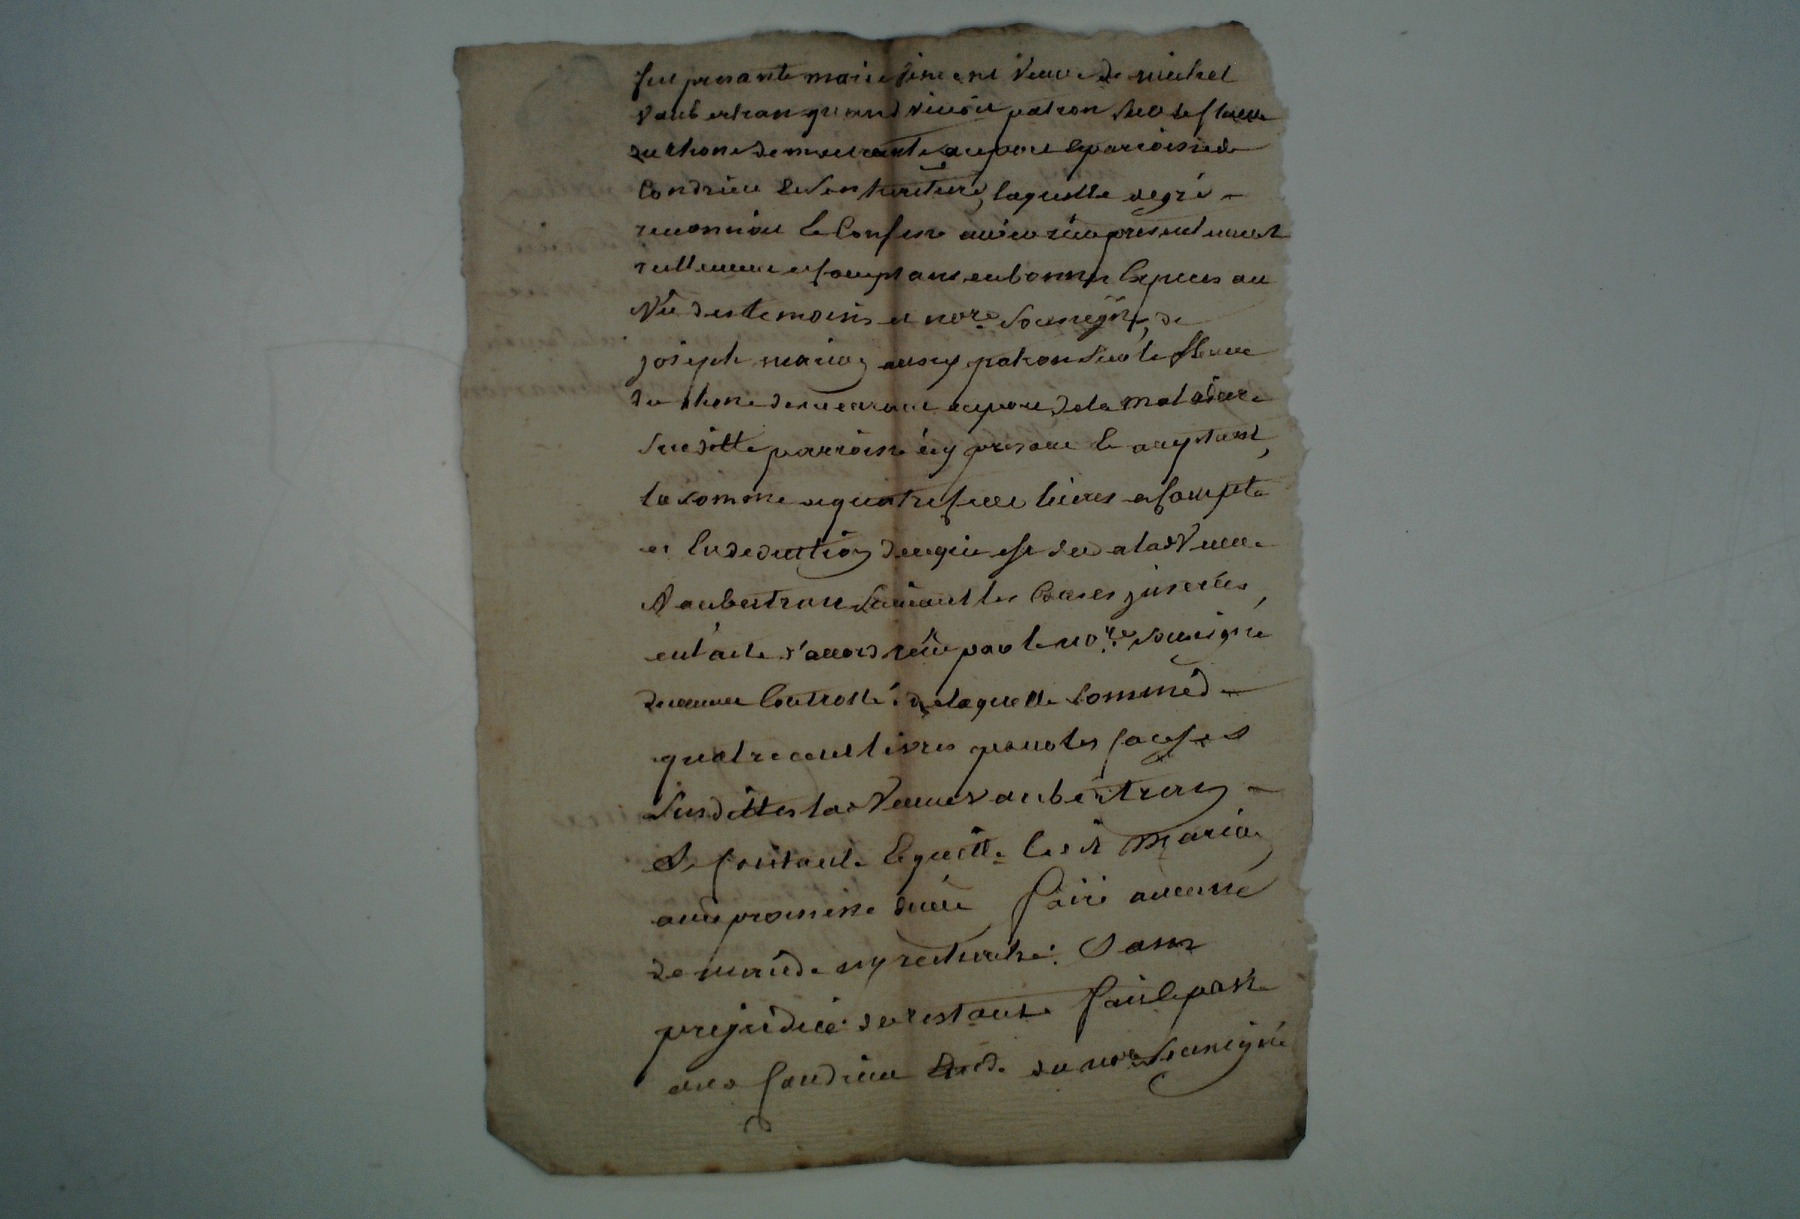 fut presante marie vincent veuve de michel
vaubertran quand vivoit patron sur le fleuve
du rhone demeurante au port & parroisse de
Condrieu laquelle de gré
reconnoit & Confesse avoir reçu presentement
reellement & comptant en bonnes Especes au
vû des temoins et nore. soussigné, de
joseph marion aussy patron sur le fleuve
du rhone demeurant au port de la maladiere
susditte parroisse icy present & acceptant,
la somme de quatre cent livres a compte
et En deduction de ce qui est du a lad veuve
vaubertran suivant les Causes inserées
en l'acte d'accord reçu par le nore. soussigné
duement Controllé. de laquelle somme de
quatre cent livres pour les causes
susdittes lad veuve vaubertran
Se contante & quitte led sr marion
avec promesse de ne faire aucune
demande ny recherche. Sans
prejudice du restant. fait & passé
aud Condrieu du nore soussigné